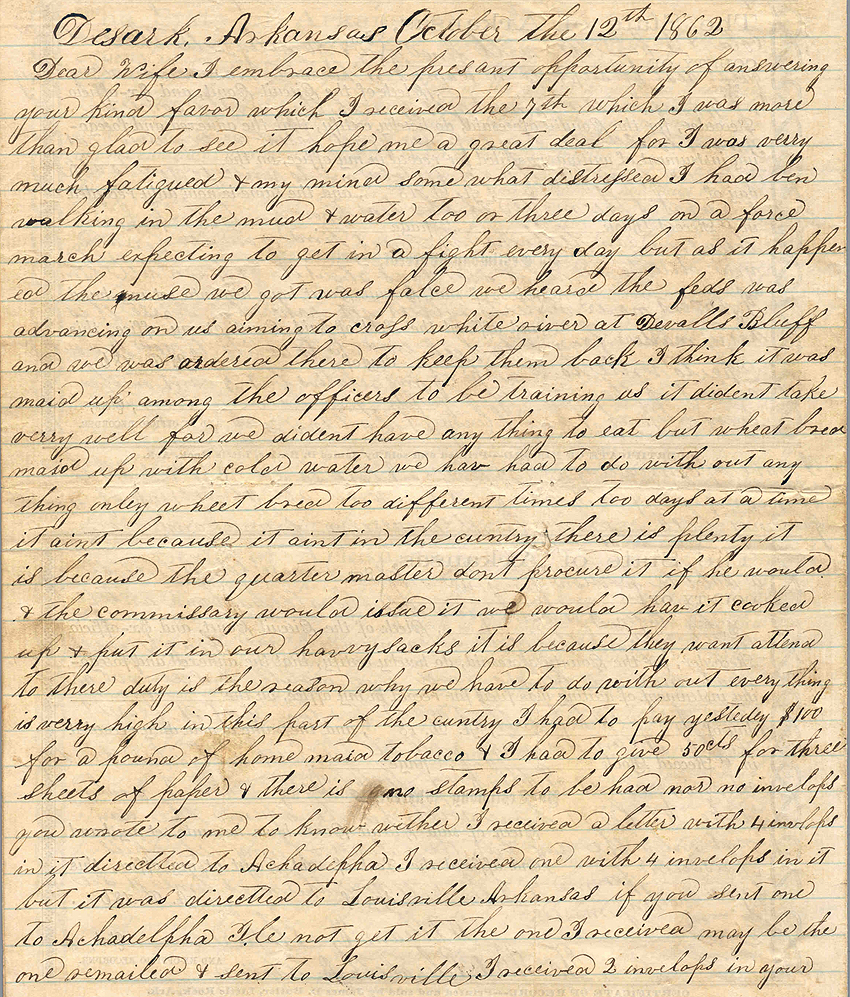 Desark, Arkansas October the 12th 1862
Dear Wife I embrace the presant opportunity of answering
your kind favor which I received the 7th which I was more
than glad to see it hope me a great deal for I was verry
much fatigued & my mind some what distressed I had ben
walking in the mud & water too or three days on a force
march expecting to get in a fight every day but as it happen
ed the muse we got was falce we heard the feds was
advancing on us aiming to cross white river at Devalls Bluff
and we was ordered there to keep them back I think it was
maid up among the officers to be training us it dident take
verry well for we dident have any thing to eat but wheat bread
maid up with cold water we hav had to do with out any
thing onley wheet bred too different times too days at a time
it aint because it aint in the cuntry there is plenty it
is because the quarter master dont procure it if he would
& the commissary would issue it we would hav it cooked
up & put it in our havvysacks it is because they want attend
to there duty is the reason why we have to do with out every thing
is verry high in this part of the cuntry I had to pay yestedey $100
for a pound of home maid tobacco & I had to give 50cts for three
sheets of paper & there is no stamps to be had nor no invelops
you wrote to me to know wether I received a letter with 4 invlops
in it directted to Achadelpha I received one with 4 invelops in it
but it was directted to Louisville Arkansas if you sent one
to Achadelpha Ile not get it the one I received may be the
one remailed & sent to Louisville I received 2 invelops in your